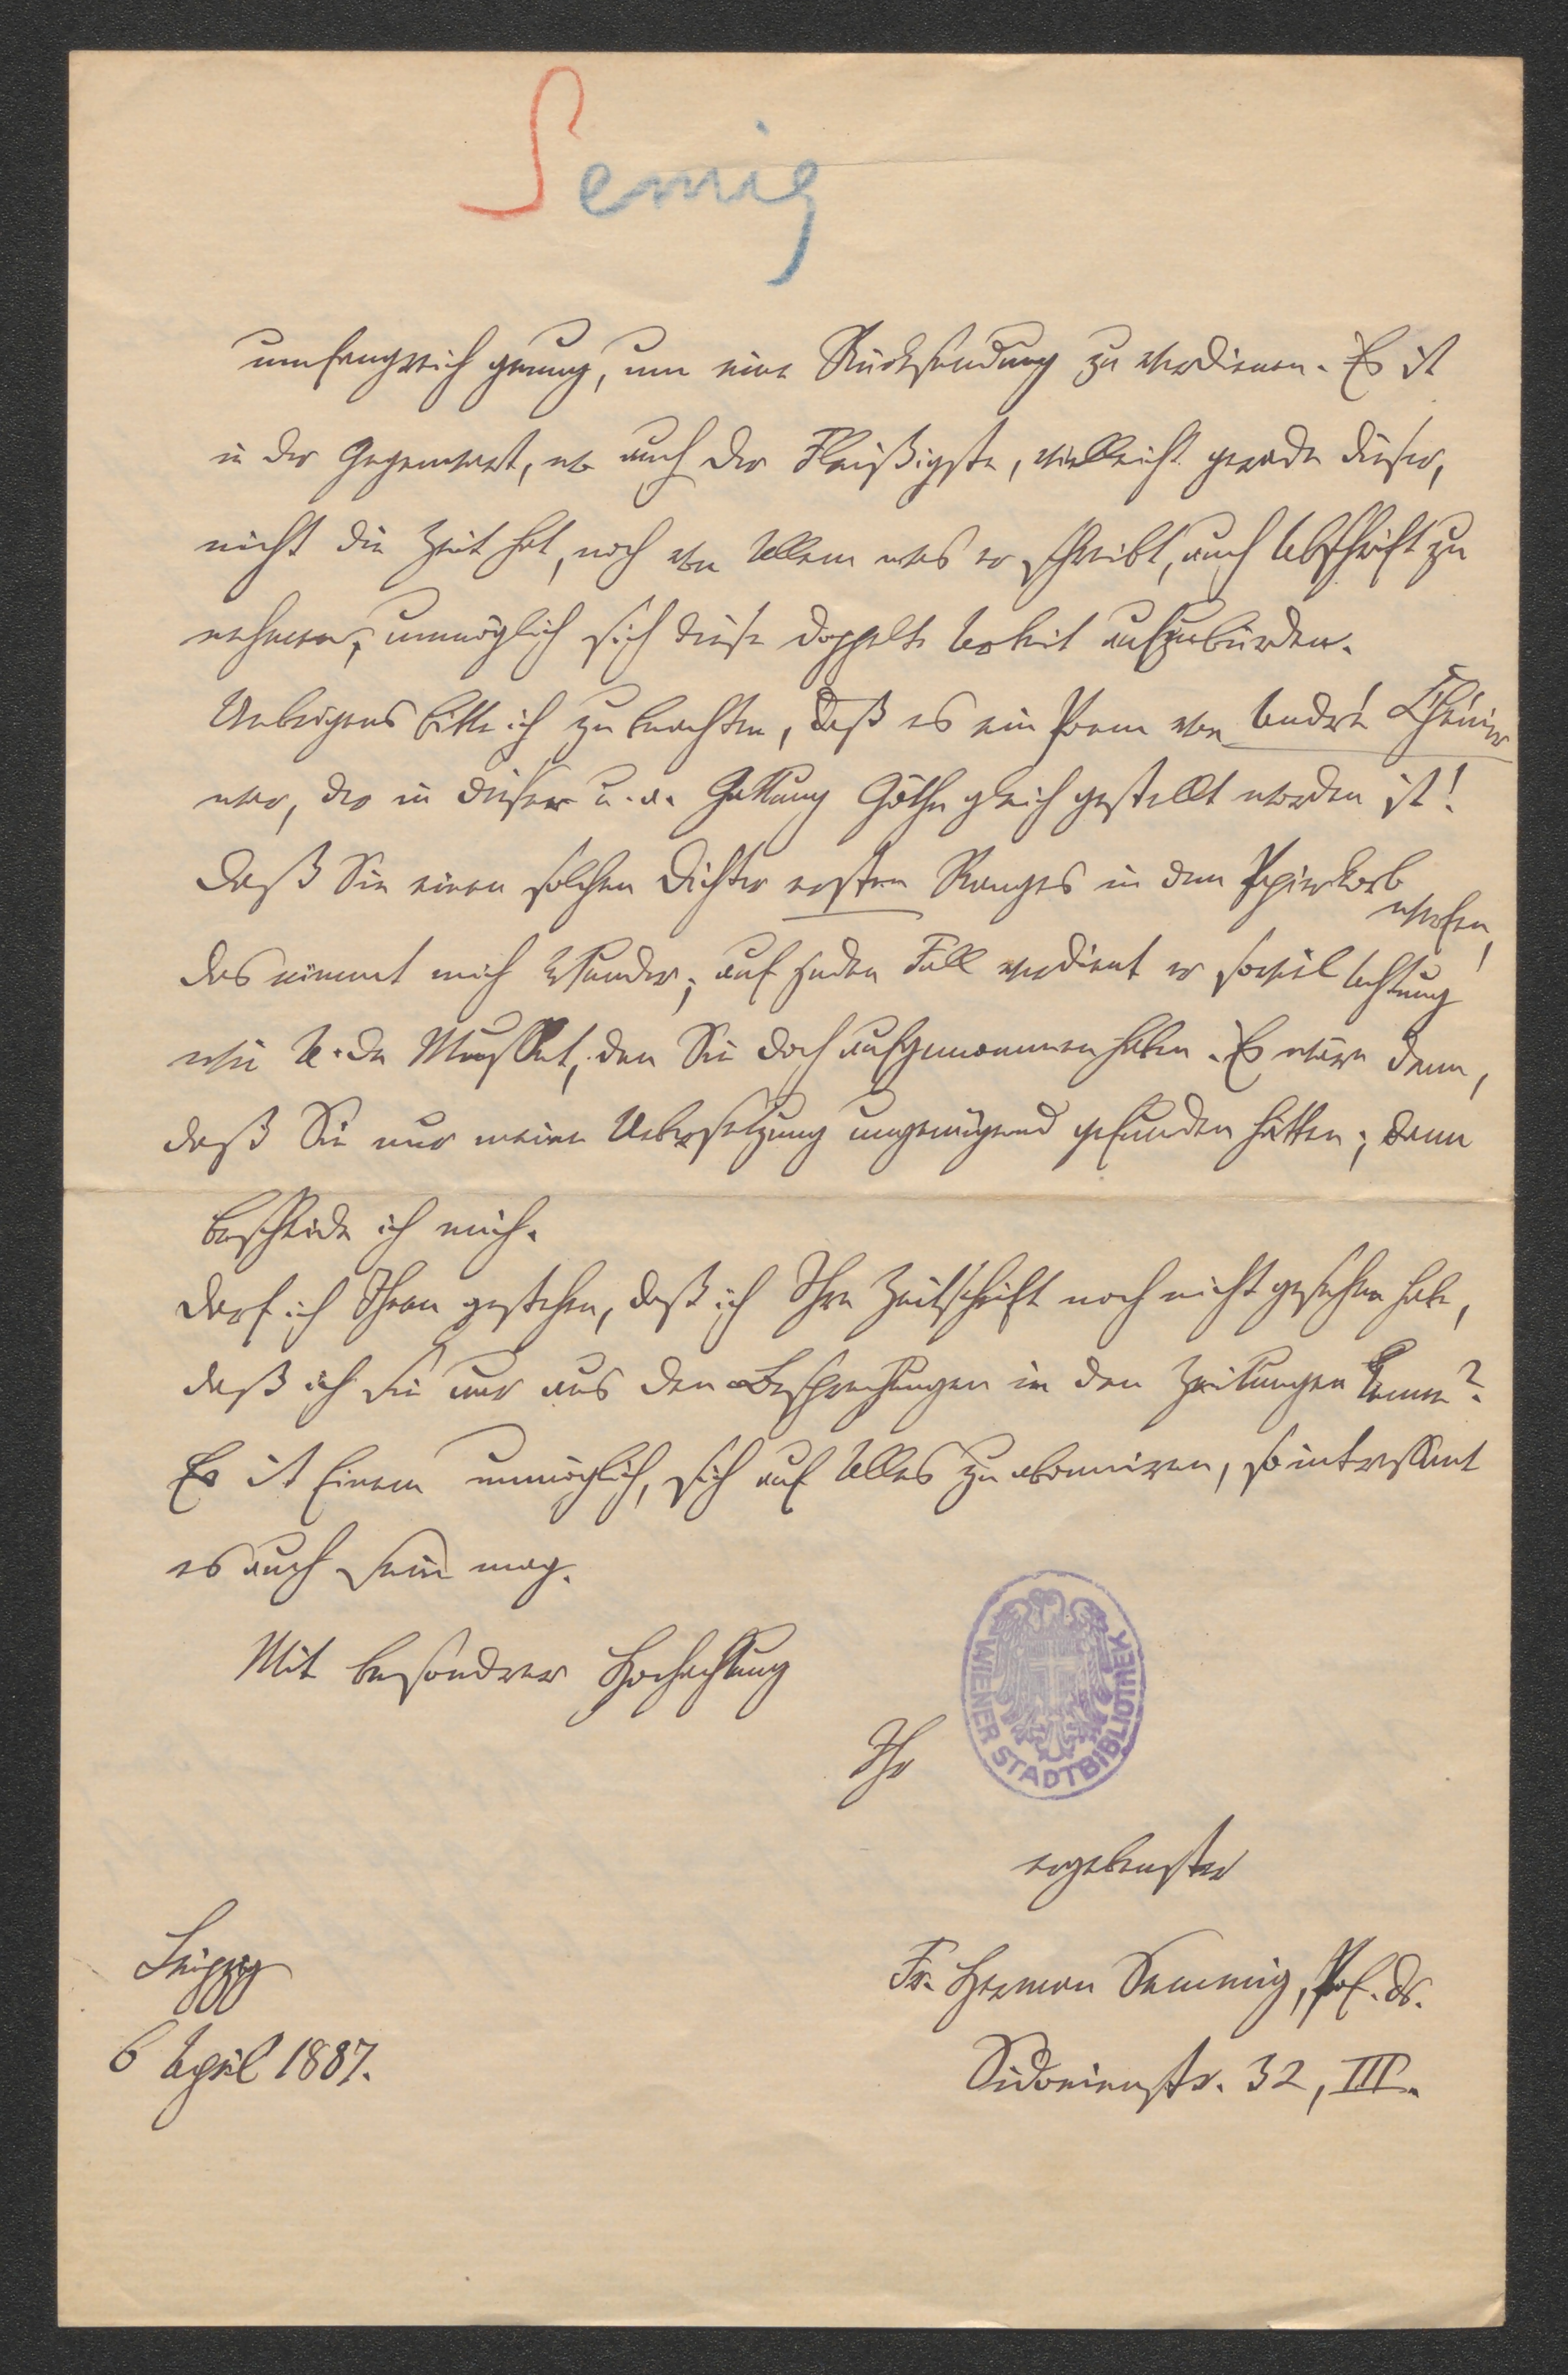 Semig
umfangreich genug, um eine Rücksendung zu verdienen. Es ist
in der Gegenwart, wo auch der Fleißigste, vielleicht gerade dieser,
nicht die Zeit hat, noch von Allem was er schreibt, auch Abschrift zu
nehmen, unmöglich sich diese doppelte Arbeit aufzubürden.
Uebrigens bitte ich zu beachten, daß es ein Poem von André Chénier
war, der in dieser u. a. Gattung Göthe gleich gestellt worden ist!
Daß Sie einen solchen Dichter ersten Ranges in den Papierkorb
werfen,
das nimmt mich Wunder; auf jeden Fall verdient er soviel Achtung
wie A. de Musset, den Sie doch aufgenommen haben. Es wäre denn,
daß Sie nur meine Uebersetzung ungenügend gefunden hätten; dann
bescheide ich mich.
Darf ich Ihnen gestehen, daß ich Ihre Zeitschrift noch nicht gesehen habe,
daß ich sie nur aus den Besprechungen in den Zeitungen kenne?
Es ist Einem unmöglich, sich auf Alles zu abonniren, so intressant
es auch sein mag.
Mit besondrer Hochachtung
Ihr
WIENER STADTBIBLIOTHEK
ergebenster
Leipzig
Fr. Herman Semmig, Prof. Dr.
6 April 1887.
Sidonienstr. 32, III.